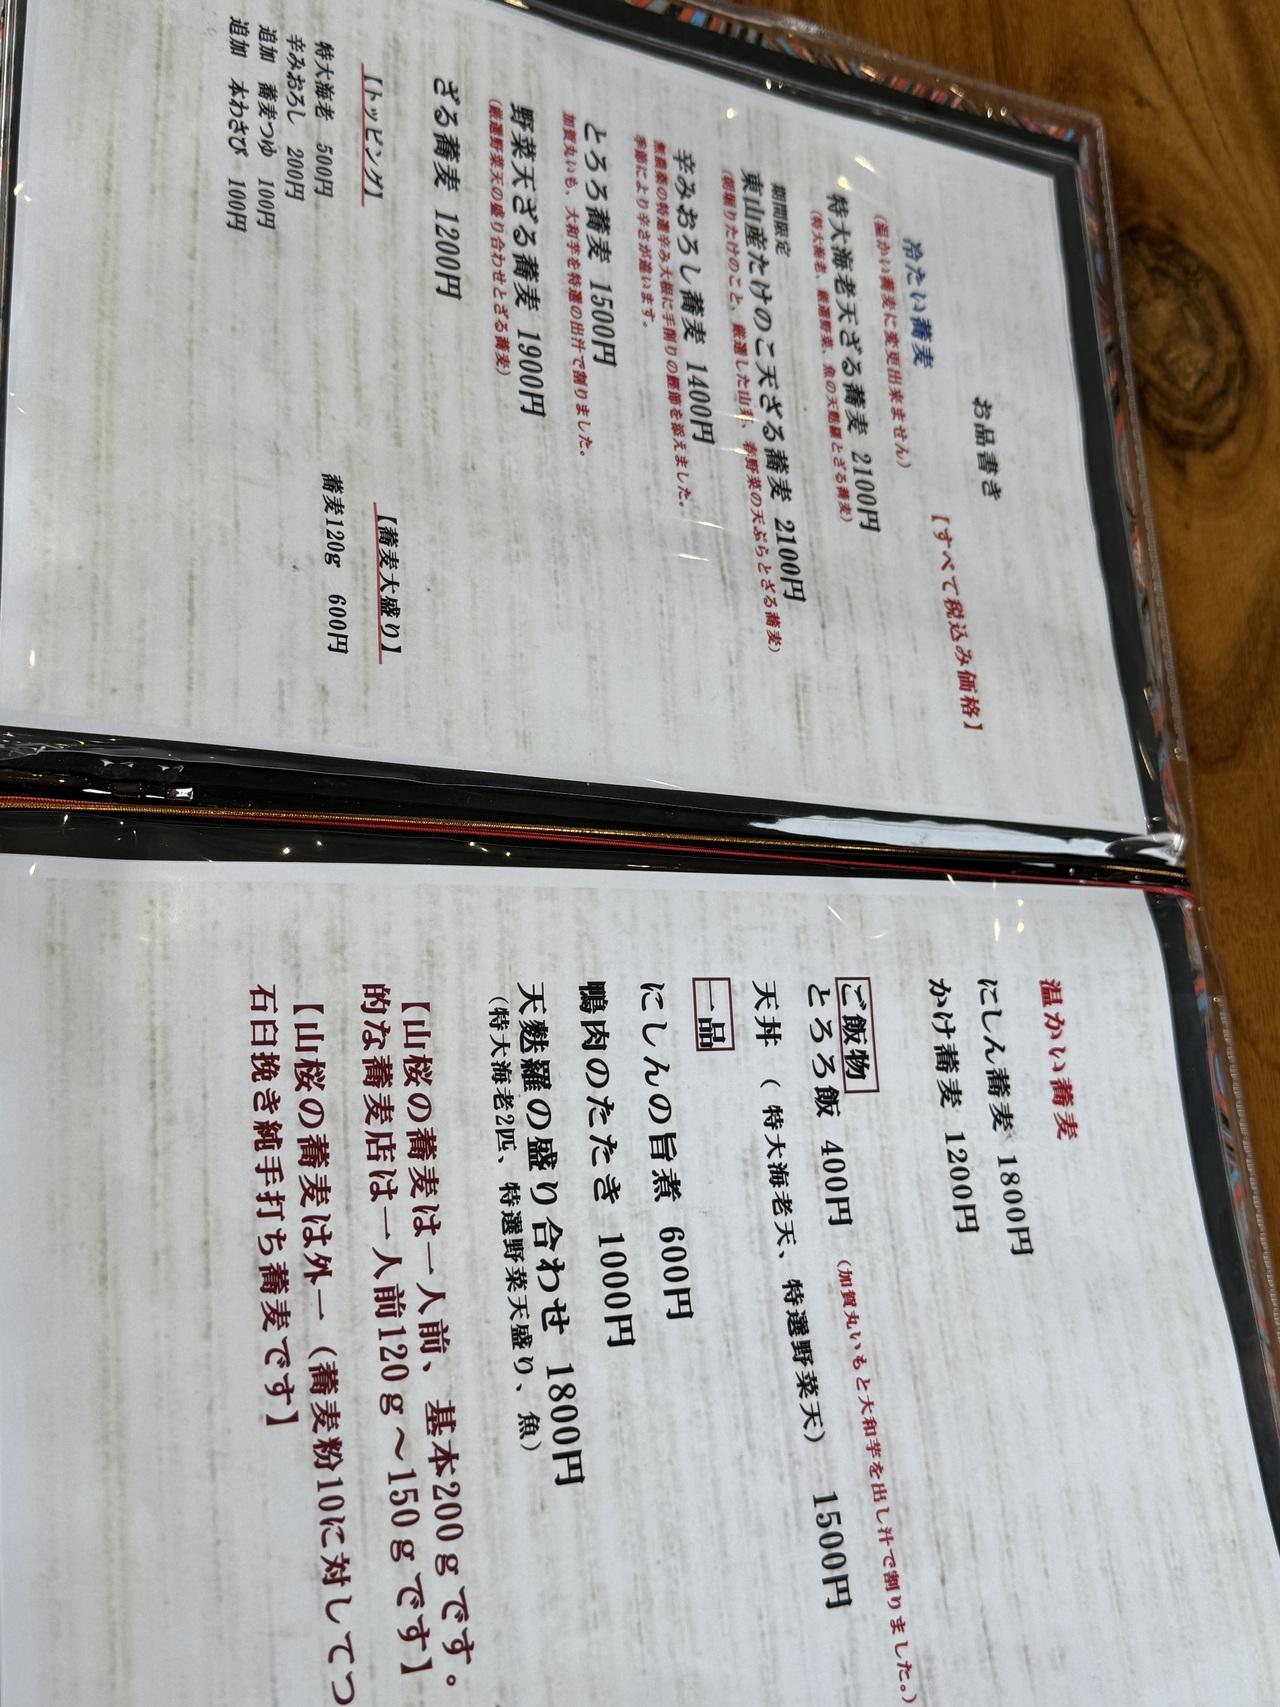 お品書き
【すべて税込み価格】
冷たい蕎麦
(温かい蕎麦に変更出来ません)
特大海老天ざる蕎麦 2100円
(特大海老、厳選野菜、魚の天麩羅とざる蕎麦)
期間限定
東山産たけのこ天ざる蕎麦 2100円
(朝堀りたけのこと、厳選した山菜、春野菜の天ぷらとざる蕎麦)
辛みおろし蕎麦 1400円
無農薬の特選辛み大根に手削りの鰹節を添えました。
季節により辛さが違います。
とろろ蕎麦 1500円
加賀丸いも、大和芋を特選の出汁で割りました。
野菜天ざる蕎麦 1900円
(厳選野菜天の盛り合わせとざる蕎麦)
ざる蕎麦 1200円
【トッピング】
特大海老 500円
辛みおろし 200円
追加 蕎麦つゆ 100円
追加 本わさび 100円
【蕎麦大盛り】
蕎麦120g 600円
温かい蕎麦
にしん蕎麦 1800円
かけ蕎麦 1200円
ご飯物
とろろ飯 400円 (加賀丸いもと大和芋を出し汁で割りました。)
天丼 (特大海老天、特選野菜天) 1500円
一品
にしんの旨煮 600円
鴨肉のたたき 1000円
天麩羅の盛り合わせ 1800円
(特大海老2匹、特選野菜天盛り、魚)
【山桜の蕎麦は一人前、基本200gです。
的な蕎麦店は一人前120g~150gです】
【山桜の蕎麦は外一(蕎麦粉10に対してつ
石臼挽き純手打ち蕎麦です】